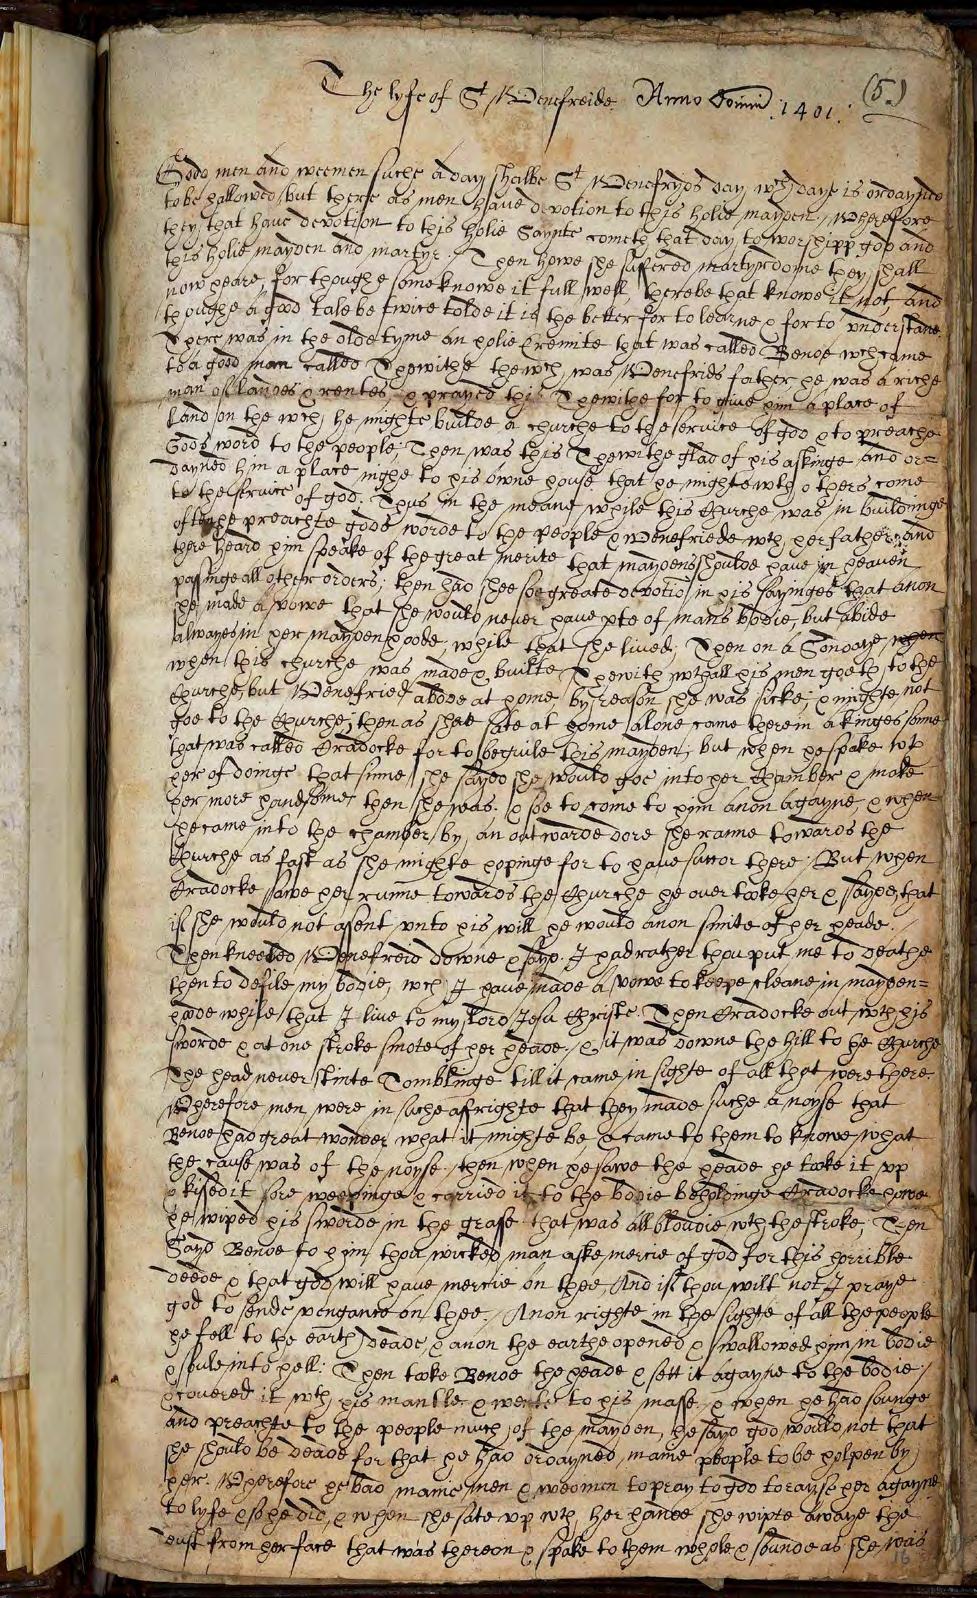 The lyfe of St Wenefreide Anno Domini .1401. (5.)
Good men and weemen suche a day shalbe St Wenefryds day wch daye is ordayned
to be hallowed, but there as men have devotion to this holie mayden, Wherefore
they that have devotion to this holie Saynte cometh that day to worshipp god and
this holie mayden and martyr. Then howe she suffered martyrdome they shall
now heare, for thoughe some knowe it full well, therebe that knowe it not, and
thoughe a good tale be twice tolde it is the better for to learne & for to understand
There was in the olde tyme an holie Eremite that was called Benoe wch came
to a good man called Thewithe the wch was Wenefrids father he was a riche
man of landes & rentes, & prayed this Thewithe for to give him a place of
land on the wch he mighte builde a churche to the service of god & to preache
Gods word to the people, Then was this Thewithe glad of his askinge and or=
dayned him a place nighe to his owne house that he mighte wth others come
to the service of god. Thus in the meane while this Churche was in buildinge
often he preachte gods worde to the people & Wenefriede wth her father, and
there heard him speake of the great merite that maydens shoulde have in heaven
passinge all other orders; then had shee soe greate devotio in his sayinges that anon
she made a vowe that she would never have pte of mans bodie, but abide
alwayes in her mayden hoode, while that she lived; Then on a Sondaye, when
when this churche was made & builte Thewith wth all his men goeth to the
Churche, but Wenefried abode at home by reason she was sicke; & mighte not
goe to the Churche; then as shee sate at home alone came therein a kinges sonne
that was called Cradocke for to beguile this mayden, but when he spake wth
her of doinge that sinne she sayed she would goe into her Chamber & make
her more handsome then she was & soe to come to him anon agayne, & when
she came into the chamber, by an outwarde dore she ranne towards the
Churche as fast as she mighte hopinge for to have succor there. But when
Cradocke sawe her runne towards the Churche he over tooke her & sayde, that
if she would not assent unto his will he would anon smite of her heade.
Then kneeled Wenefreid downe & sayd. I had rather thou put me to deathe
then to defile my bodie, wch I have made a vowe to keepe cleane in mayden=
hoode while that I live to my Lord Jesu Christe. Then Cradocke out wth his
sworde & at one stroke smote of her heade. & it was downe the hill to he Churche
The head never stinte Tomblinge till it came in sighte of all that were there.
Wherefore men were in suche afrighte that they made suche a noyse that
Benoe had great wonder what it mighte be & came to them to knowe what
the cause was of the noyse, then when he sawe the heade he tooke it up
& kised it sore weepinge & carried it to the bodie beholdinge Cradocke howe
he wiped his sworde in the grasse that was all bloudie wth the stroke, Then
Sayd Benoe to him thou wicked man aske mercie of god for this horrible
deede & that god will have mercie on thee, And if thou wilt not I praye
god to sende vengance on thee. Anon righte in the sighte of all the people
he fell to the earth deade, & anon the earthe opened & swallowed him in bodie
& soule into hell. Then tooke Benoe the heade & sett it agayne to the bodie
& covered it wth his mantle & wente to his masse, & when he had sounge
and preachte to the people much of the mayden, he sayd god would not that
she should be deade for that he had ordayned manie people to be holpen by
her. Wherefore he bad manie men & weomen to pray to god to rayse her agayne
to lyfe & soe he did, & when she sate up wth her hande she wipte awaye the
dust from her face that was thereon & spake to them whole & sounde as she was
16